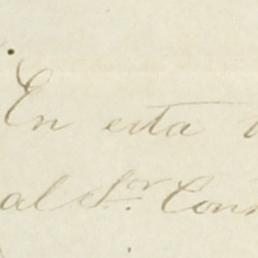 En esta
al Sr. Con